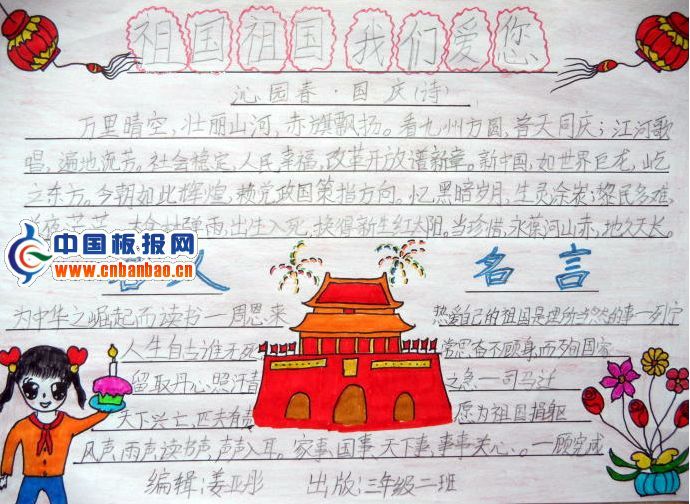 祖国祖国我们爱您
沁园春·国庆(诗)
万里晴空,壮丽山河,赤旗飘扬。看九州方圆,普天同庆;江河歌
唱,遍地流芳。社会稳定,人民幸福,改革开放谱新章。新中国,如世界巨龙,屹
立东方。今朝如此辉煌,赖党政国策指方向。忆,黑暗岁月,生灵涂炭;黎民多难,
弹雨,出生入死,换得新生红太阳。当珍惜,永葆河山赤,地久天长。
中国板报网
www.cnbanbao.cn
名言
为中华之崛起而读书—周恩来
热爱自己的祖国是理所当然的事—列宁
人生自古谁无死
留取丹心照汗青
常思奋不顾身而殉国家
之急—司马迁
天下兴亡,匹夫有责
愿为祖国捐躯
风声,雨声,读书声,声声入耳。家事,国事,天下事,事事关心、。—顾完成
编辑:姜亚彤 出版:三年级二班